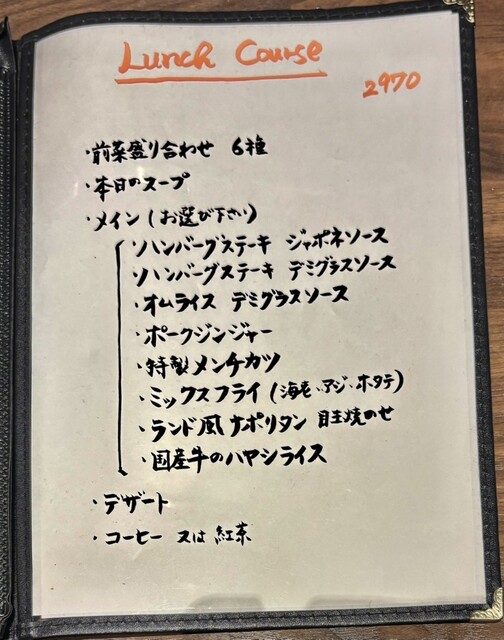 Lunch Course
2970
・前菜盛り合わせ 6種
・本日のスープ
・メイン(お選び下さい)
・ハンバーグステーキ ジャポネソース
・ハンバーグステーキ デミグラスソース
・オムライス デミグラスソース
・ポークジンジャー
・特製メンチカツ
・ミックスフライ(海老、アジ・ホタテ)
・ランド風ナポリタン 目玉焼のせ
・国産牛のハヤシライス
・デザート
・コーヒー 又は 紅茶